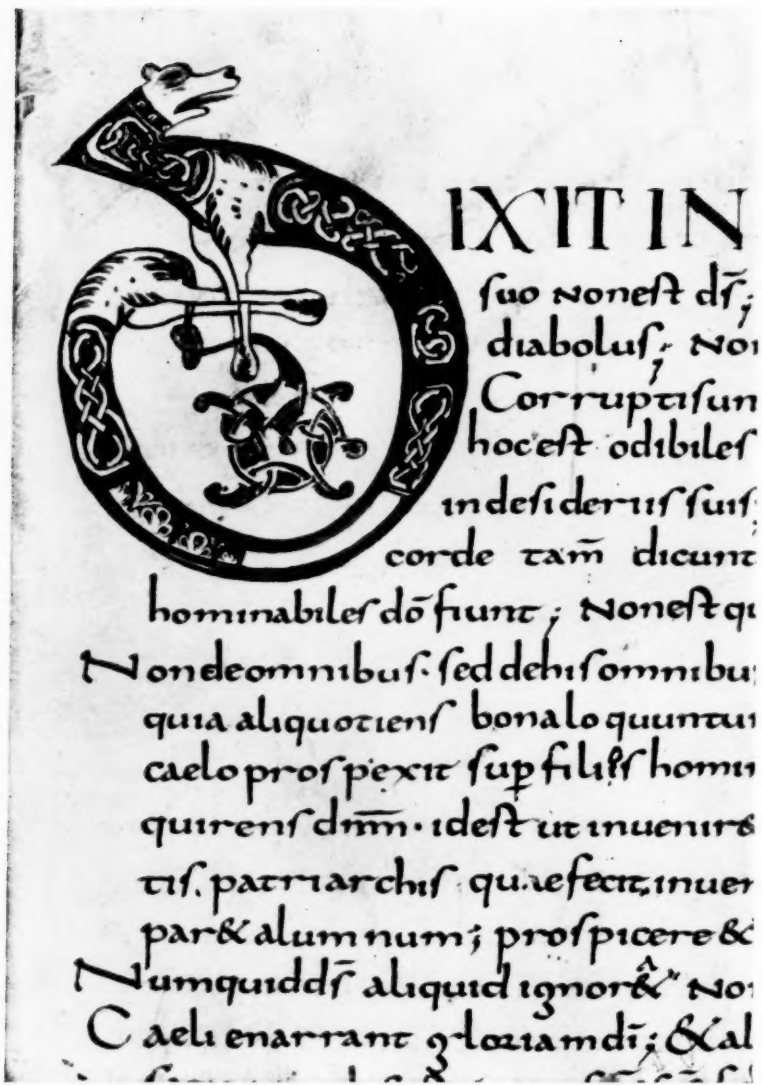 DIXIT IN
suo nonest ds̄;
diabolus; No
Corruptisun
hoc est odibiles
indesideriis suis
corde tam̄ dicunt
hominabiles dō fiunt; Nonest qu
Nondeomnibus. sed dehis omnibu
quia aliquotiens bona loquuntur
caelo prospexit sup̄ filios homin
quirens dnm̄. idest ut inuenir&
tis. patriarchis quae fecit, inuen
par& alumnum; prospicere &
Numquid ds̄ aliquid ignor& No
Caeli enarrant gloriam dī; & al